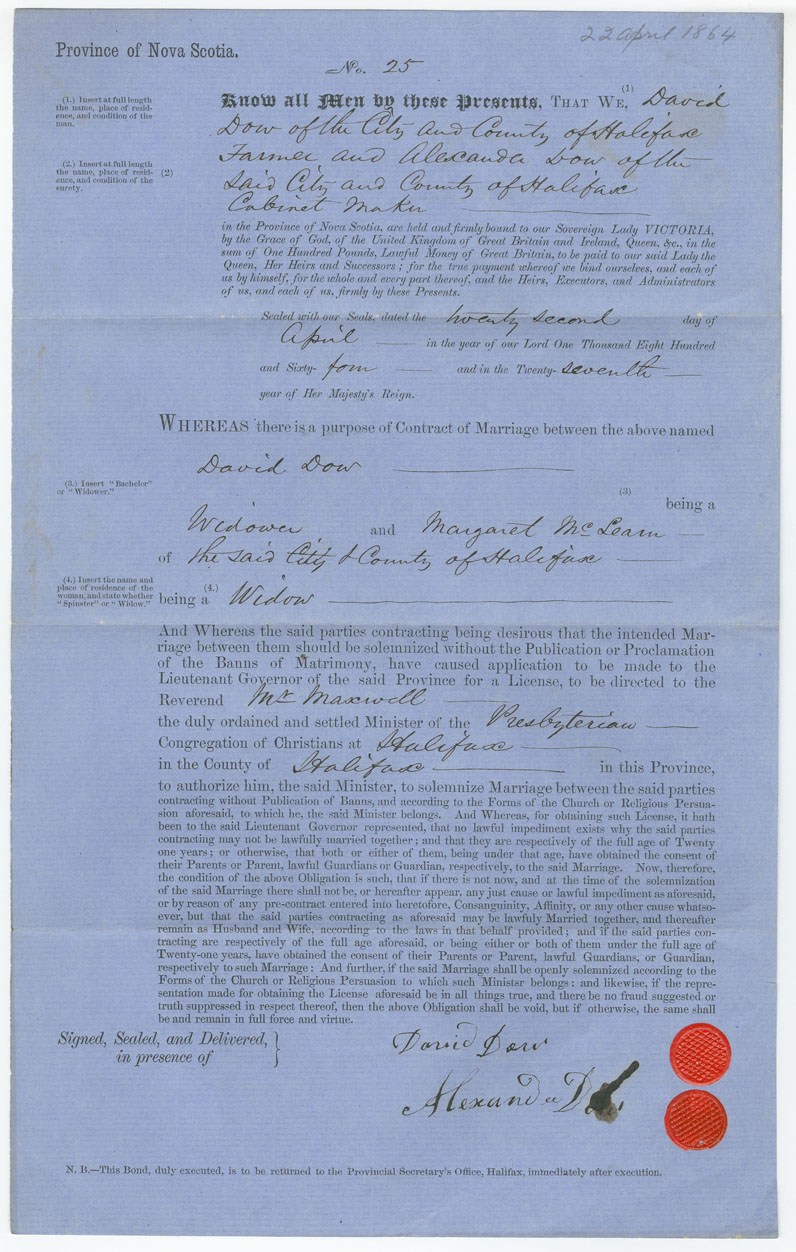 22 April 1864
Province of Nova Scotia.
No. 25
(1.) Insert at full length
the name, place of resid-
ence, and condition of the
man.
Know all Men by these Presents, THAT WE, (1) David
Dow of the City and County of Halifax
(2.) Insert at full length
the name, place of resid-
ence, and condition of the
surety.
(2)
Farmer and Alexander Dow of the
said City and County of Halifax
Cabinet Maker
in the Province of Nova Scotia, are held and firmly bound to our Sovereign Lady VICTORIA,
by the Grace of God, of the United Kingdom of Great Britain and Ireland, Queen, &c., in the
sum of One Hundred Pounds, Lawful Money of Great Britain, to be paid to our said Lady the
Queen, Her Heirs and Successors; for the true payment whereof we bind ourselves, and each of
us by himself, for the whole and every part thereof, and the Heirs, Executors, and Administrators
of us, and each of us, firmly by these Presents.
Sealed with our Seals, dated the twenty second day of
April in the year of our Lord One Thousand Eight Hundred
and Sixty- four and in the Twenty- seventh
year of Her Majesty's Reign.
WHEREAS there is a purpose of Contract of Marriage between the above named
David Dow
(3.) Insert "Bachelor"
or "Widower."
(3)
being a
Widower and Margaret McLearn
of the said City & County of Halifax
(4.) Insert the name and
place of residence of the
woman, and state whether
"Spinster" or "Widow."
being a (4.) Widow
And Whereas the said parties contracting being desirous that the intended Mar-
riage between them should be solemnized without the Publication or Proclamation
of the Banns of Matrimony, have caused application to be made to the
Lieutenant Governor of the said Province for a License, to be directed to the
Reverend Mr Maxwell
the duly ordained and settled Minister of the Presbyterian
Congregation of Christians at Halifax
in the County of Halifax in this Province,
to authorize him, the said Minister, to solemnize Marriage between the said parties
contracting without Publication of Banns, and according to the Forms of the Church or Religious Persua-
sion aforesaid, to which he, the said Minister belongs. And Whereas, for obtaining such License, it hath
been to the said Lieutenant Governor represented, that no lawful impediment exists why the said parties
contracting may not be lawfully married together; and that they are respectively of the full age of Twenty
one years; or otherwise, that both or either of them, being under that age, have obtained the consent of
their Parents or Parent, lawful Guardians or Guardian, respectively, to the said Marriage. Now, therefore,
the condition of the above Obligation is such, that if there is not now, and at the time of the solemnization
of the said Marriage there shall not be, or hereafter appear, any just cause or lawful impediment as aforesaid,
or by reason of any pre-contract entered into heretofore, Consanguinity, Affinity, or any other cause whatso-
ever, but that the said parties contracting as aforesaid may be lawfuly Married together, and thereafter
remain as Husband and Wife, according to the laws in that behalf provided; and if the said parties con-
tracting are respectively of the full age aforesaid, or being either or both of them under the full age of
Twenty-one years, have obtained the consent of their Parents or Parent, lawful Guardians, or Guardian,
respectively to such Marriage: And further, if the said Marriage shall be openly solemnized according to the
Forms of the Church or Religious Persuasion to which such Ministsr belongs: and likewise, if the repre-
sentation made for obtaining the License aforesaid be in all things true, and there be no fraud suggested or
truth suppressed in respect thereof, then the above Obligation shall be void, but if otherwise, the same shall
be and remain in full force and virtue.
Signed, Sealed, and Delivered,
in presence of
David Dow
Alexander
N. B.—This Bond, duly executed, is to be returned to the Provincial Secretary's Office, Halifax, immediately after execution.